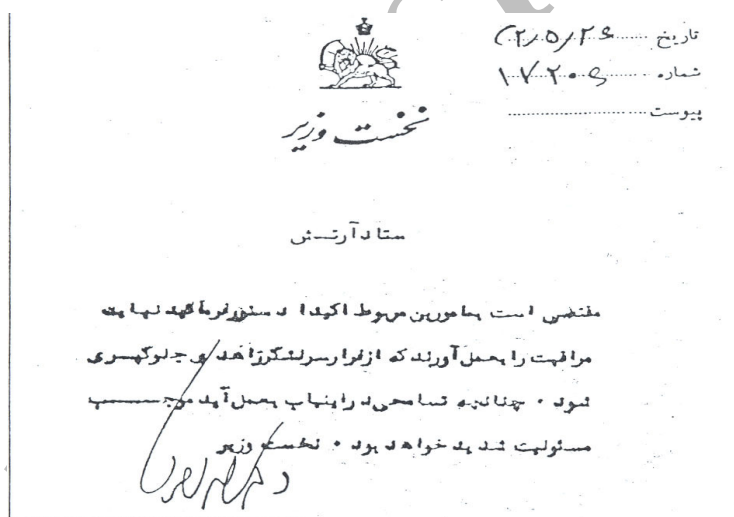 تاریخ
شماره ۱۷۲۰۶
پیوست
نخست وزیر
ستاد آرتش
مقتضی است بمامورین مربوط اکیدا دستور فرمائید نهایت
مراقبت را بعمل آورند که از فرار سرلشگر زاهدی جلوگیری
شود . چنانچه تسامحی در اینباب بعمل آید موجب
مسئولیت شدید خواهد بود . نخست وزیر